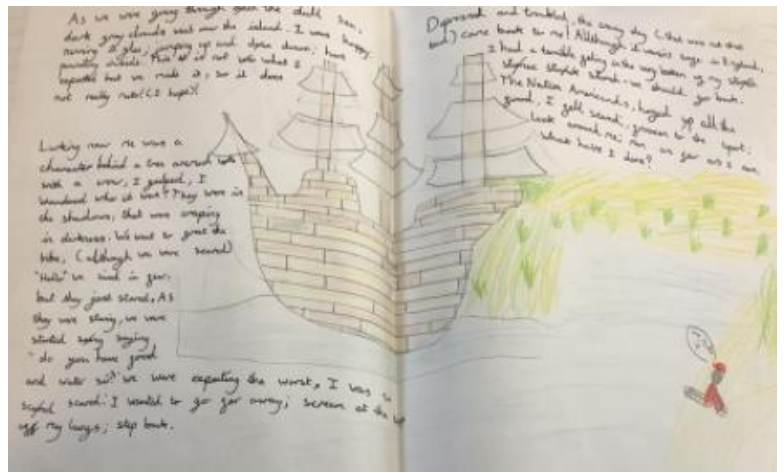 As we were going through gave the dull sea,
dark gray clouds went over the island. I was happy,
running glee; jumping up and down, dawn; have
outside. This is not was what I
expected but we made it, so it does
not really matter (I hope)!
Lurking near me was a
character behind a tree with
with a crew, I gulped, I
wondered who it was? They were in
the shadows, that were creeping
in darkness. We went to greet the
tribe, (although we were scared)
"Hello" we said in fear.
but they just stared. As
they were staring, we were
started saying
"do you have good
and water sir?" we were expecting the worst, I was so
scared: I wanted to go far away; scream at the top
off my lungs; step back.
Depressed and troubled, the day (that was not that
bad) came back to me! Although it was in England,
I had a terrible feeling in the very bottom of my
stupid we should go back.
The Native Americans, hogged up all the
I felt scared, frozen to the spot:
look around me; run as far as I can
What have I done?